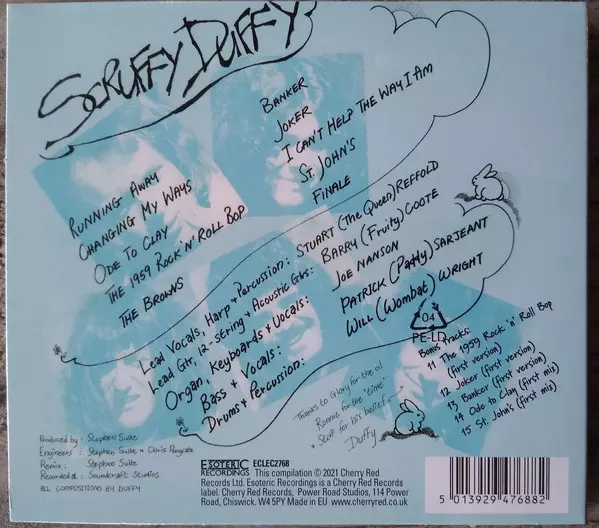 SCRUFFY DUFFY
RUNNING AWAY
CHANGING MY WAYS
ODE TO CLAY
THE 1959 ROCK 'N' ROLL BOP
THE BROWNS
BANKER
JOKER
I CAN'T HELP THE WAY I AM
ST. JOHN'S
FINALE
Lead Vocals, Harp + Percussion: STUART (The Queen) REFFOLD
Lead Gtr, 12-String + Acoustic Gtrs: BARRY (Fruity) COOTE
Organ, Keyboards + Vocals: JOE NANSON
Bass + Vocals: PATRICK (Patly) SARJEANT
Drums + Percussion: WILL (Wombat) WRIGHT
04
PE-LD
Bonus Tracks:
11 The 1959 Rock 'n' Roll Bop
(first version)
12 Joker (first version)
13 Banker (first version)
14 Ode to Clay (first mix)
15 St. John's (first mix)
Thanks to Glory for the oil
Ronnie for the "time"
+ Staff for his belief
Duffy
Produced by: Stephen Suke
Engineers: Stephen Suke + Chris
Remix: Stephen Suke
Recorded at: Soundcraft Studios
ALL COMPOSITIONS BY DUFFY
ESOTERIC
RECORDINGS
ECLEC2768
This compilation © 2021 Cherry Red
Records Ltd. Esoteric Recordings is a Cherry Red Records
label. Cherry Red Records, Power Road Studios, 114 Power
Road, Chiswick. W4 5PY Made in EU www.cherryred.co.uk
5 013929 476882